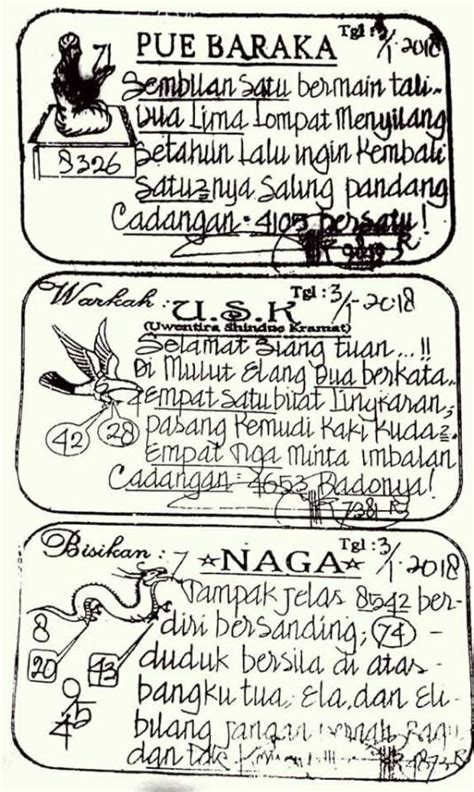 PUE BARAKA Tgl: 3/1-2018
71
Sembilan Satu bermain tali-
Dua Lima Lompat Menyilang
8326
Setahun Lalu ingin Kembali
Satu2nya Saling pandang
Cadangan: 4105 bersatu!
Warkah: U.S.K Tgl: 3/1-2018
(Uwentira Shindue Kramat)
Selamat Siang tuan...!!
Di Mulut Elang Dua berkata..
Empat Satu buat Lingkaran,
42 28
pasang Kemudi Kaki Kuda2.
Empat Tiga Minta imbalan
Cadangan: 4653 Badonya!
7381
Bisikan: 7 ☆NAGA☆ Tgl: 3/1-2018
Tampak jelas 8542 ber-
8
diri bersanding, 74 -
20 43
duduk bersila di atas-
95
4
bangku tua, Ela, dan Eli-
bilang jangan pernah Ragu
dan tak